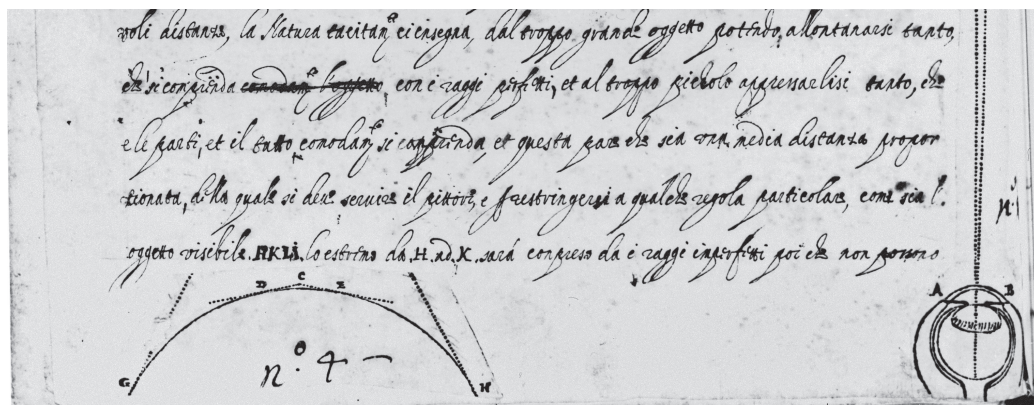 voli distanze, la Natura tacitam.te ci insegna, dal troppo grande oggetto potendo allontanarsi tanto,
che si comprenda comodam.te l'oggetto con i raggi perfetti, et al troppo picciolo appressarlisi tanto, che
e le parti, et il tutto comodam.te si comprenda, et questa pare che sia una media distanza propor
tionata, della quale si deve servire il pittore, e restringersi a qualche regola particolare, come sia l'
oggetto visibile .HKLI. lo estremo da .H. ad .K. sará conpreso da i raggi imperfetti poi che non possono
D C E
A B
n.º 4
G H